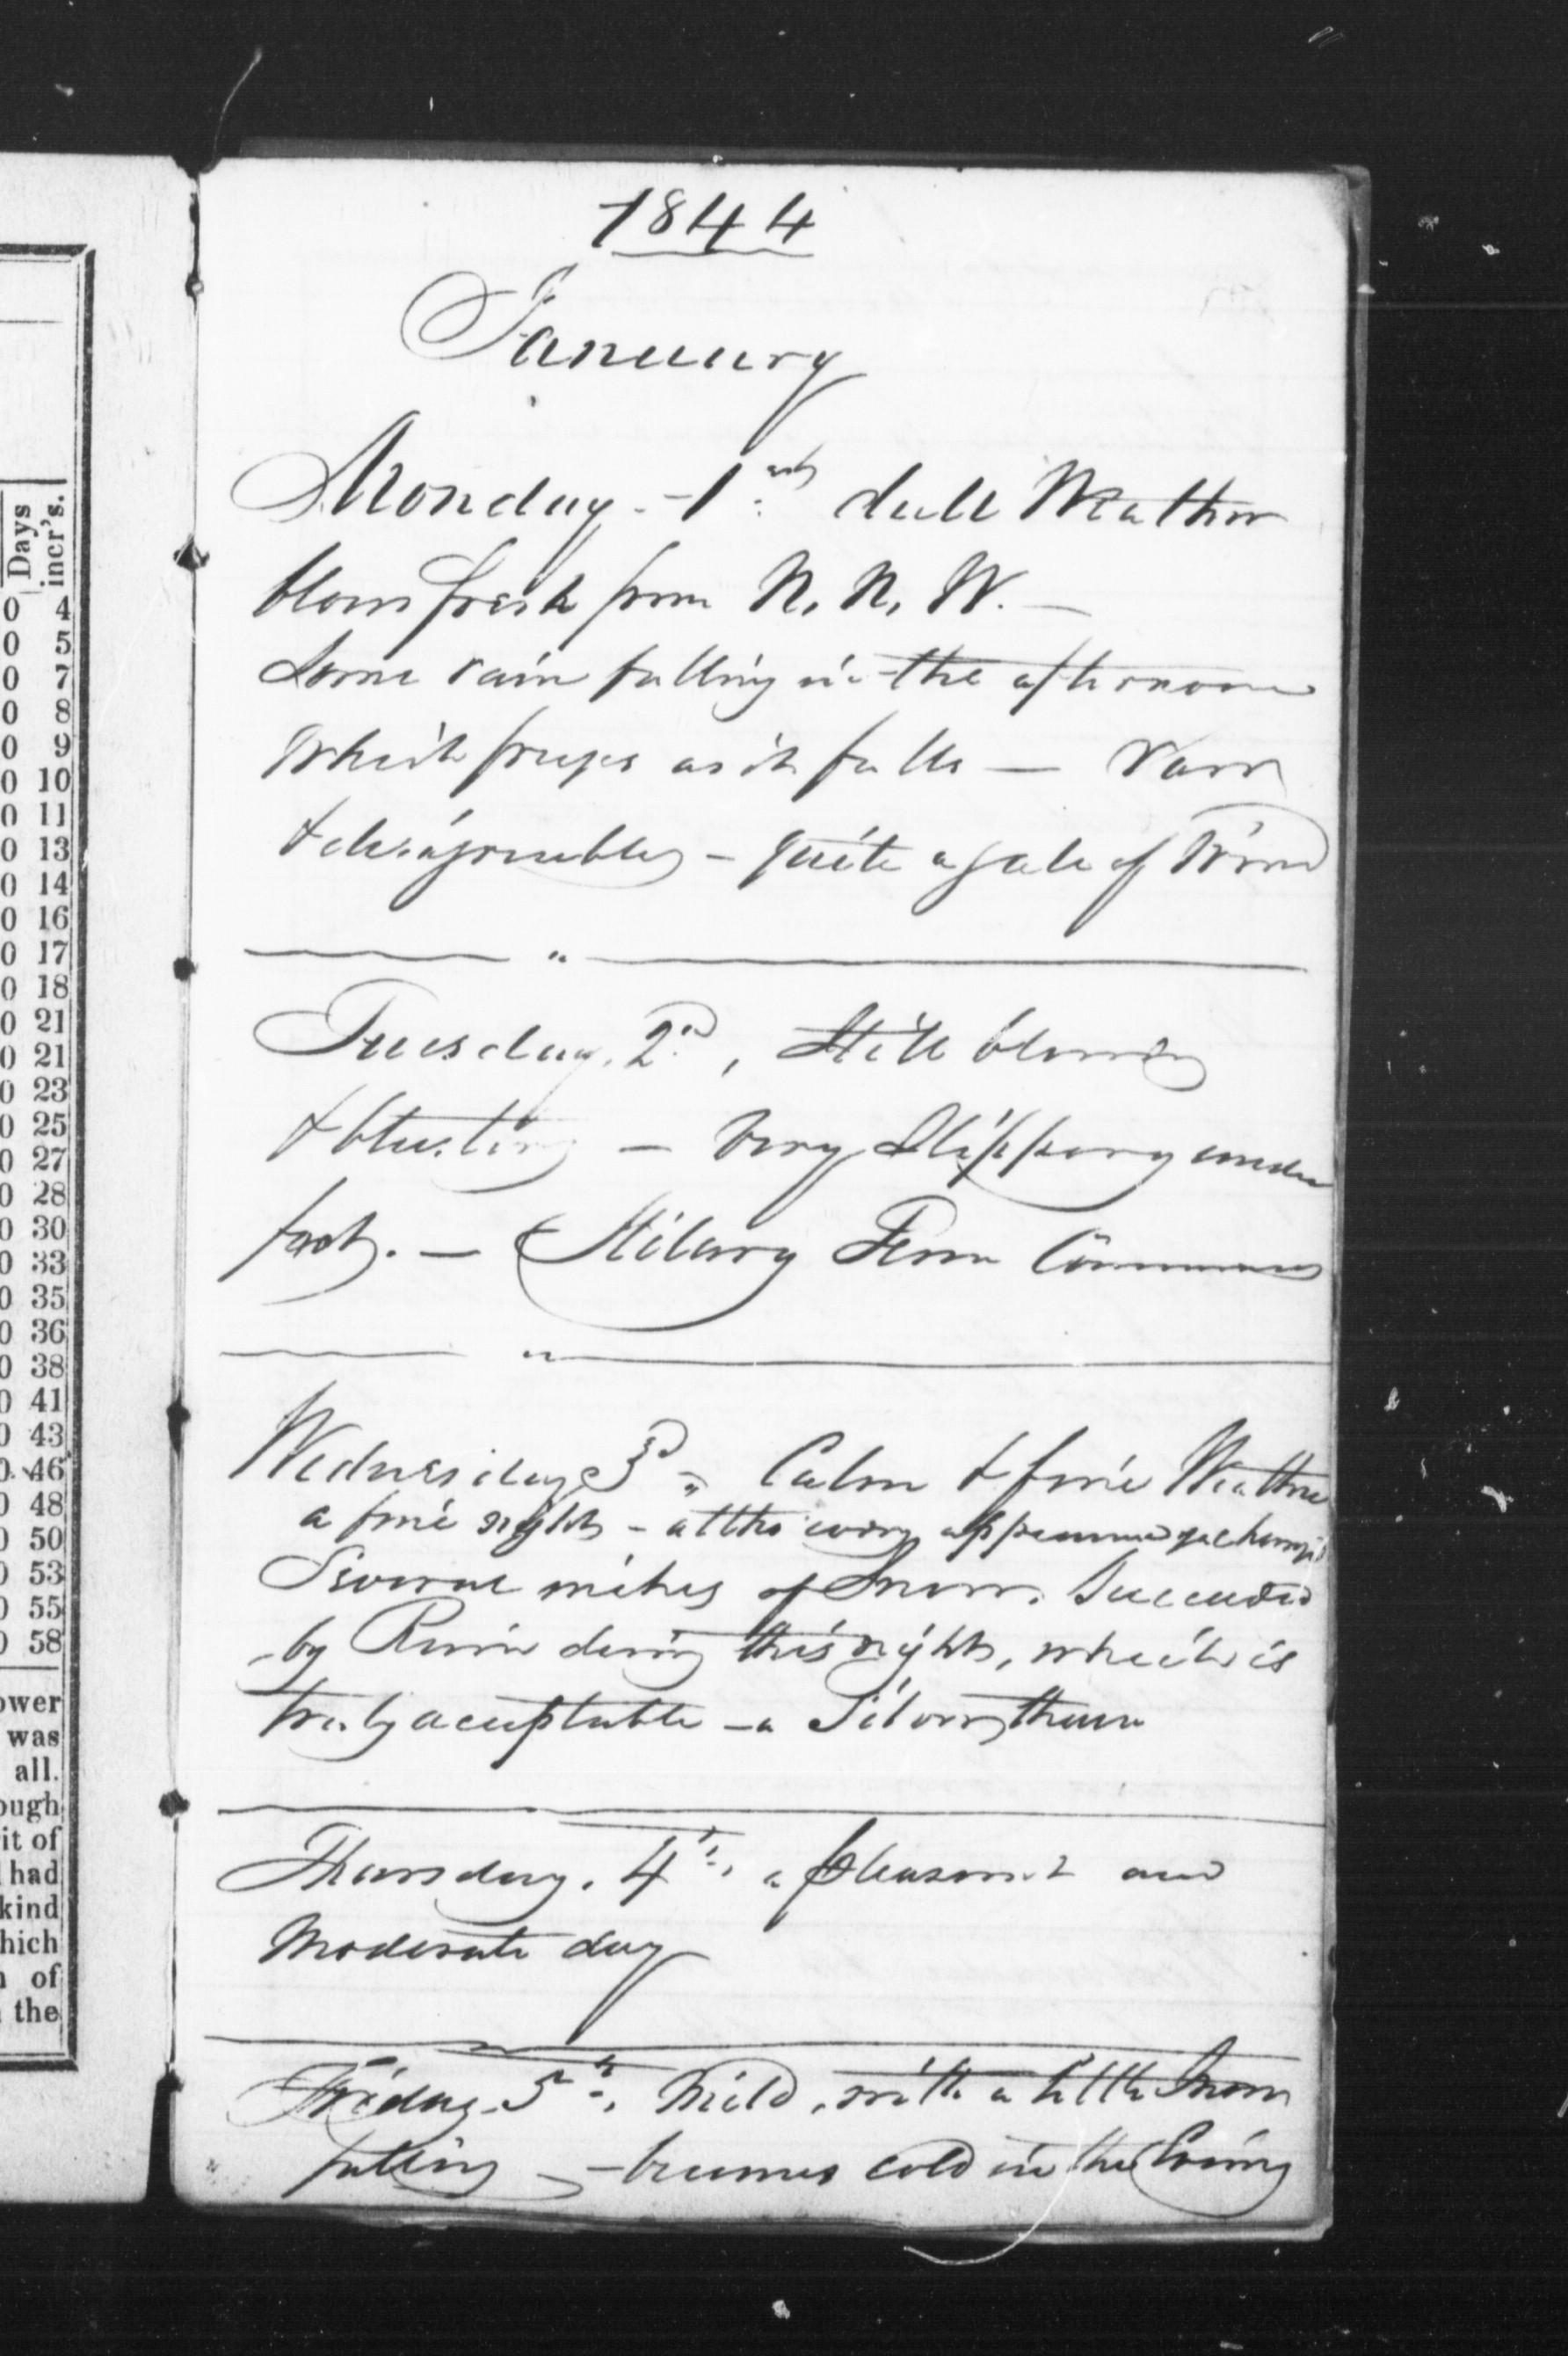 Days
incr's.
0 4
0 5
0 7
0 8
0 9
0 10
0 11
0 13
0 14
0 16
0 17
0 18
0 21
0 21
0 23
0 25
0 27
0 28
0 30
0 33
0 35
0 36
0 38
0 41
0 43
0 46
0 48
0 50
0 53
0 55
0 58
ower
was
all.
ough
it of
had
kind
hich
of
the
1844
January
Monday - 1st dull Weather
blows fresh from N. N. W. —
Some rain falling in the afternoon
which freezes as it falls — raw
& disagreeable - quite a gale of Wind
Tuesday. 2d, Still blowing
& blusting — very Slippery under
foot. — Hilary Term Commences
Wednesday 3d „ Calm & fine Weather
a fine night - appearances changed
Several inches of Snow. Succeeded
by Rain during this night, which is
truly acceptable - a Silver thaw
Thursday. 4th, a pleasant and
Moderate day
Friday. 5th, Mild, with a little Snow
falling — becomes cold in the Evening